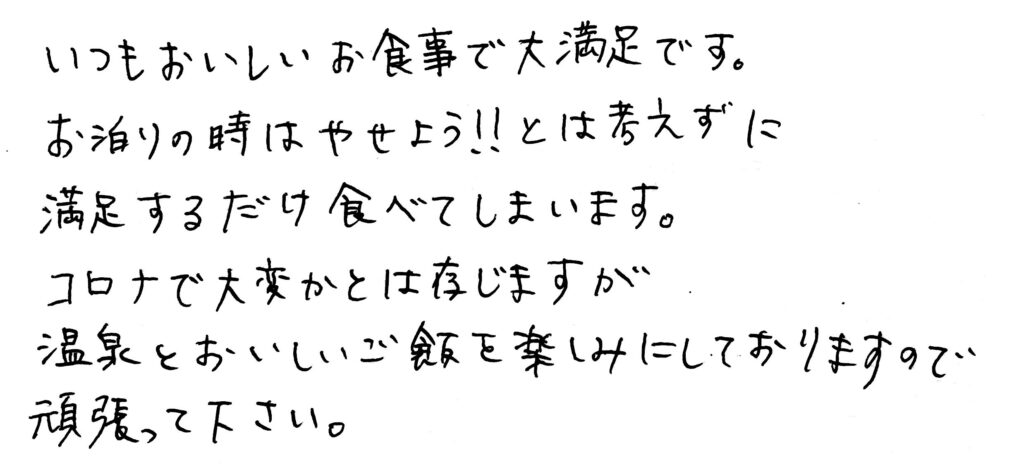 いつもおいしいお食事で大満足です。
お泊りの時はやせよう!!とは考えずに
満足するだけ食べてしまいます。
コロナで大変かとは存じますが
温泉とおいしいご飯を楽しみにしておりますので
頑張って下さい。